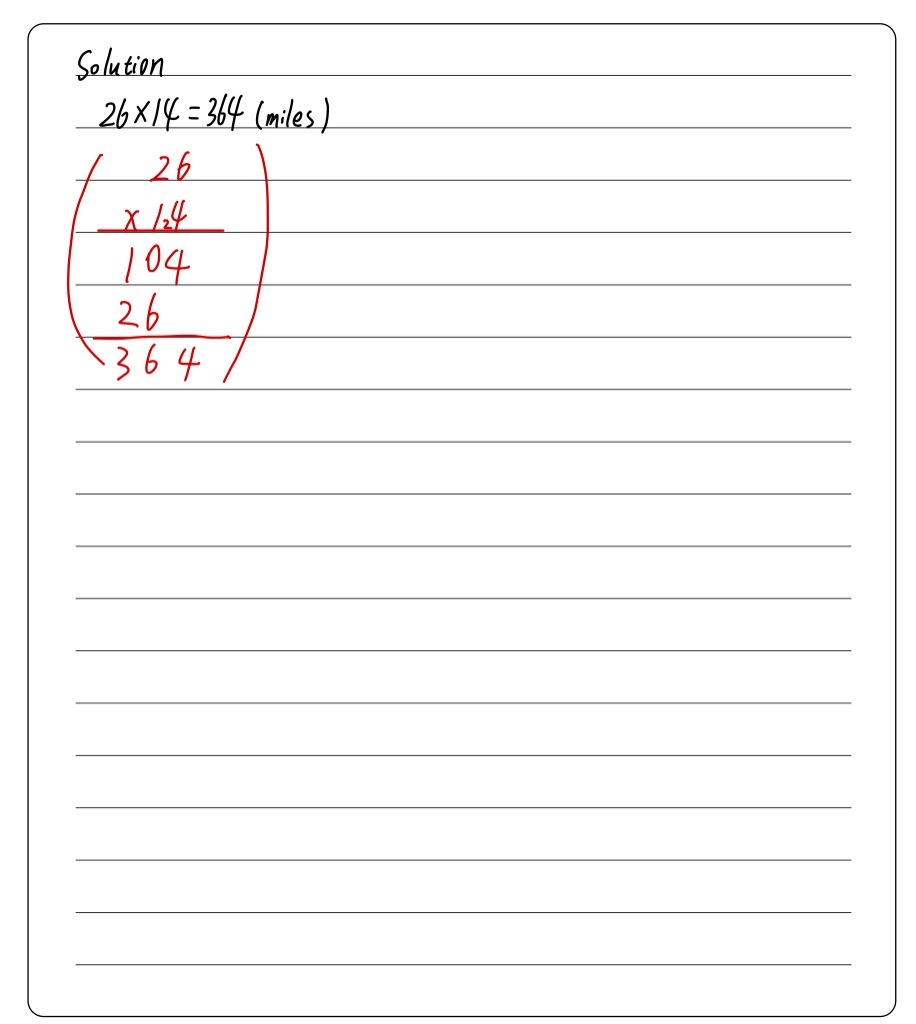 Solution
26×14=364 (miles)
26
×124
104
26
364